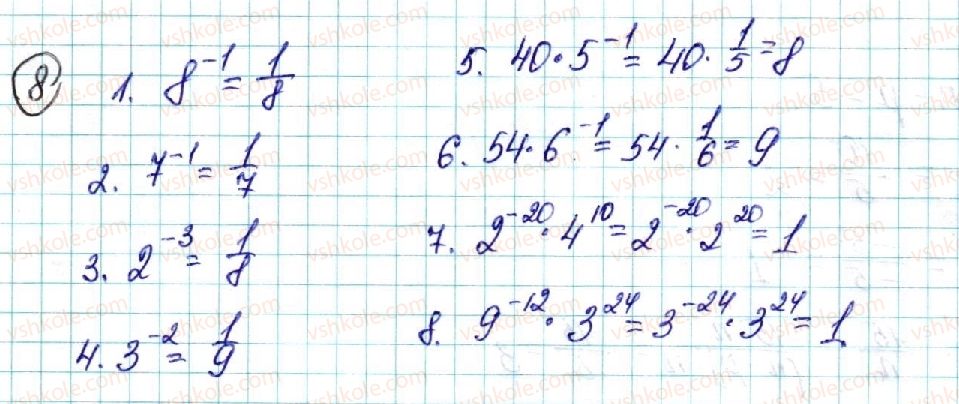 8
1. 8⁻¹ = 1/8
2. 7⁻¹ = 1/7
3. 2⁻³ = 1/8
4. 3⁻² = 1/9
5. 40 · 5⁻¹ = 40 · 1/5 = 8
6. 54 · 6⁻¹ = 54 · 1/6 = 9
7. 2⁻²⁰ · 4¹⁰ = 2⁻²⁰ · 2²⁰ = 1
8. 9⁻¹² · 3²⁴ = 3⁻²⁴ · 3²⁴ = 1
vshkole.com